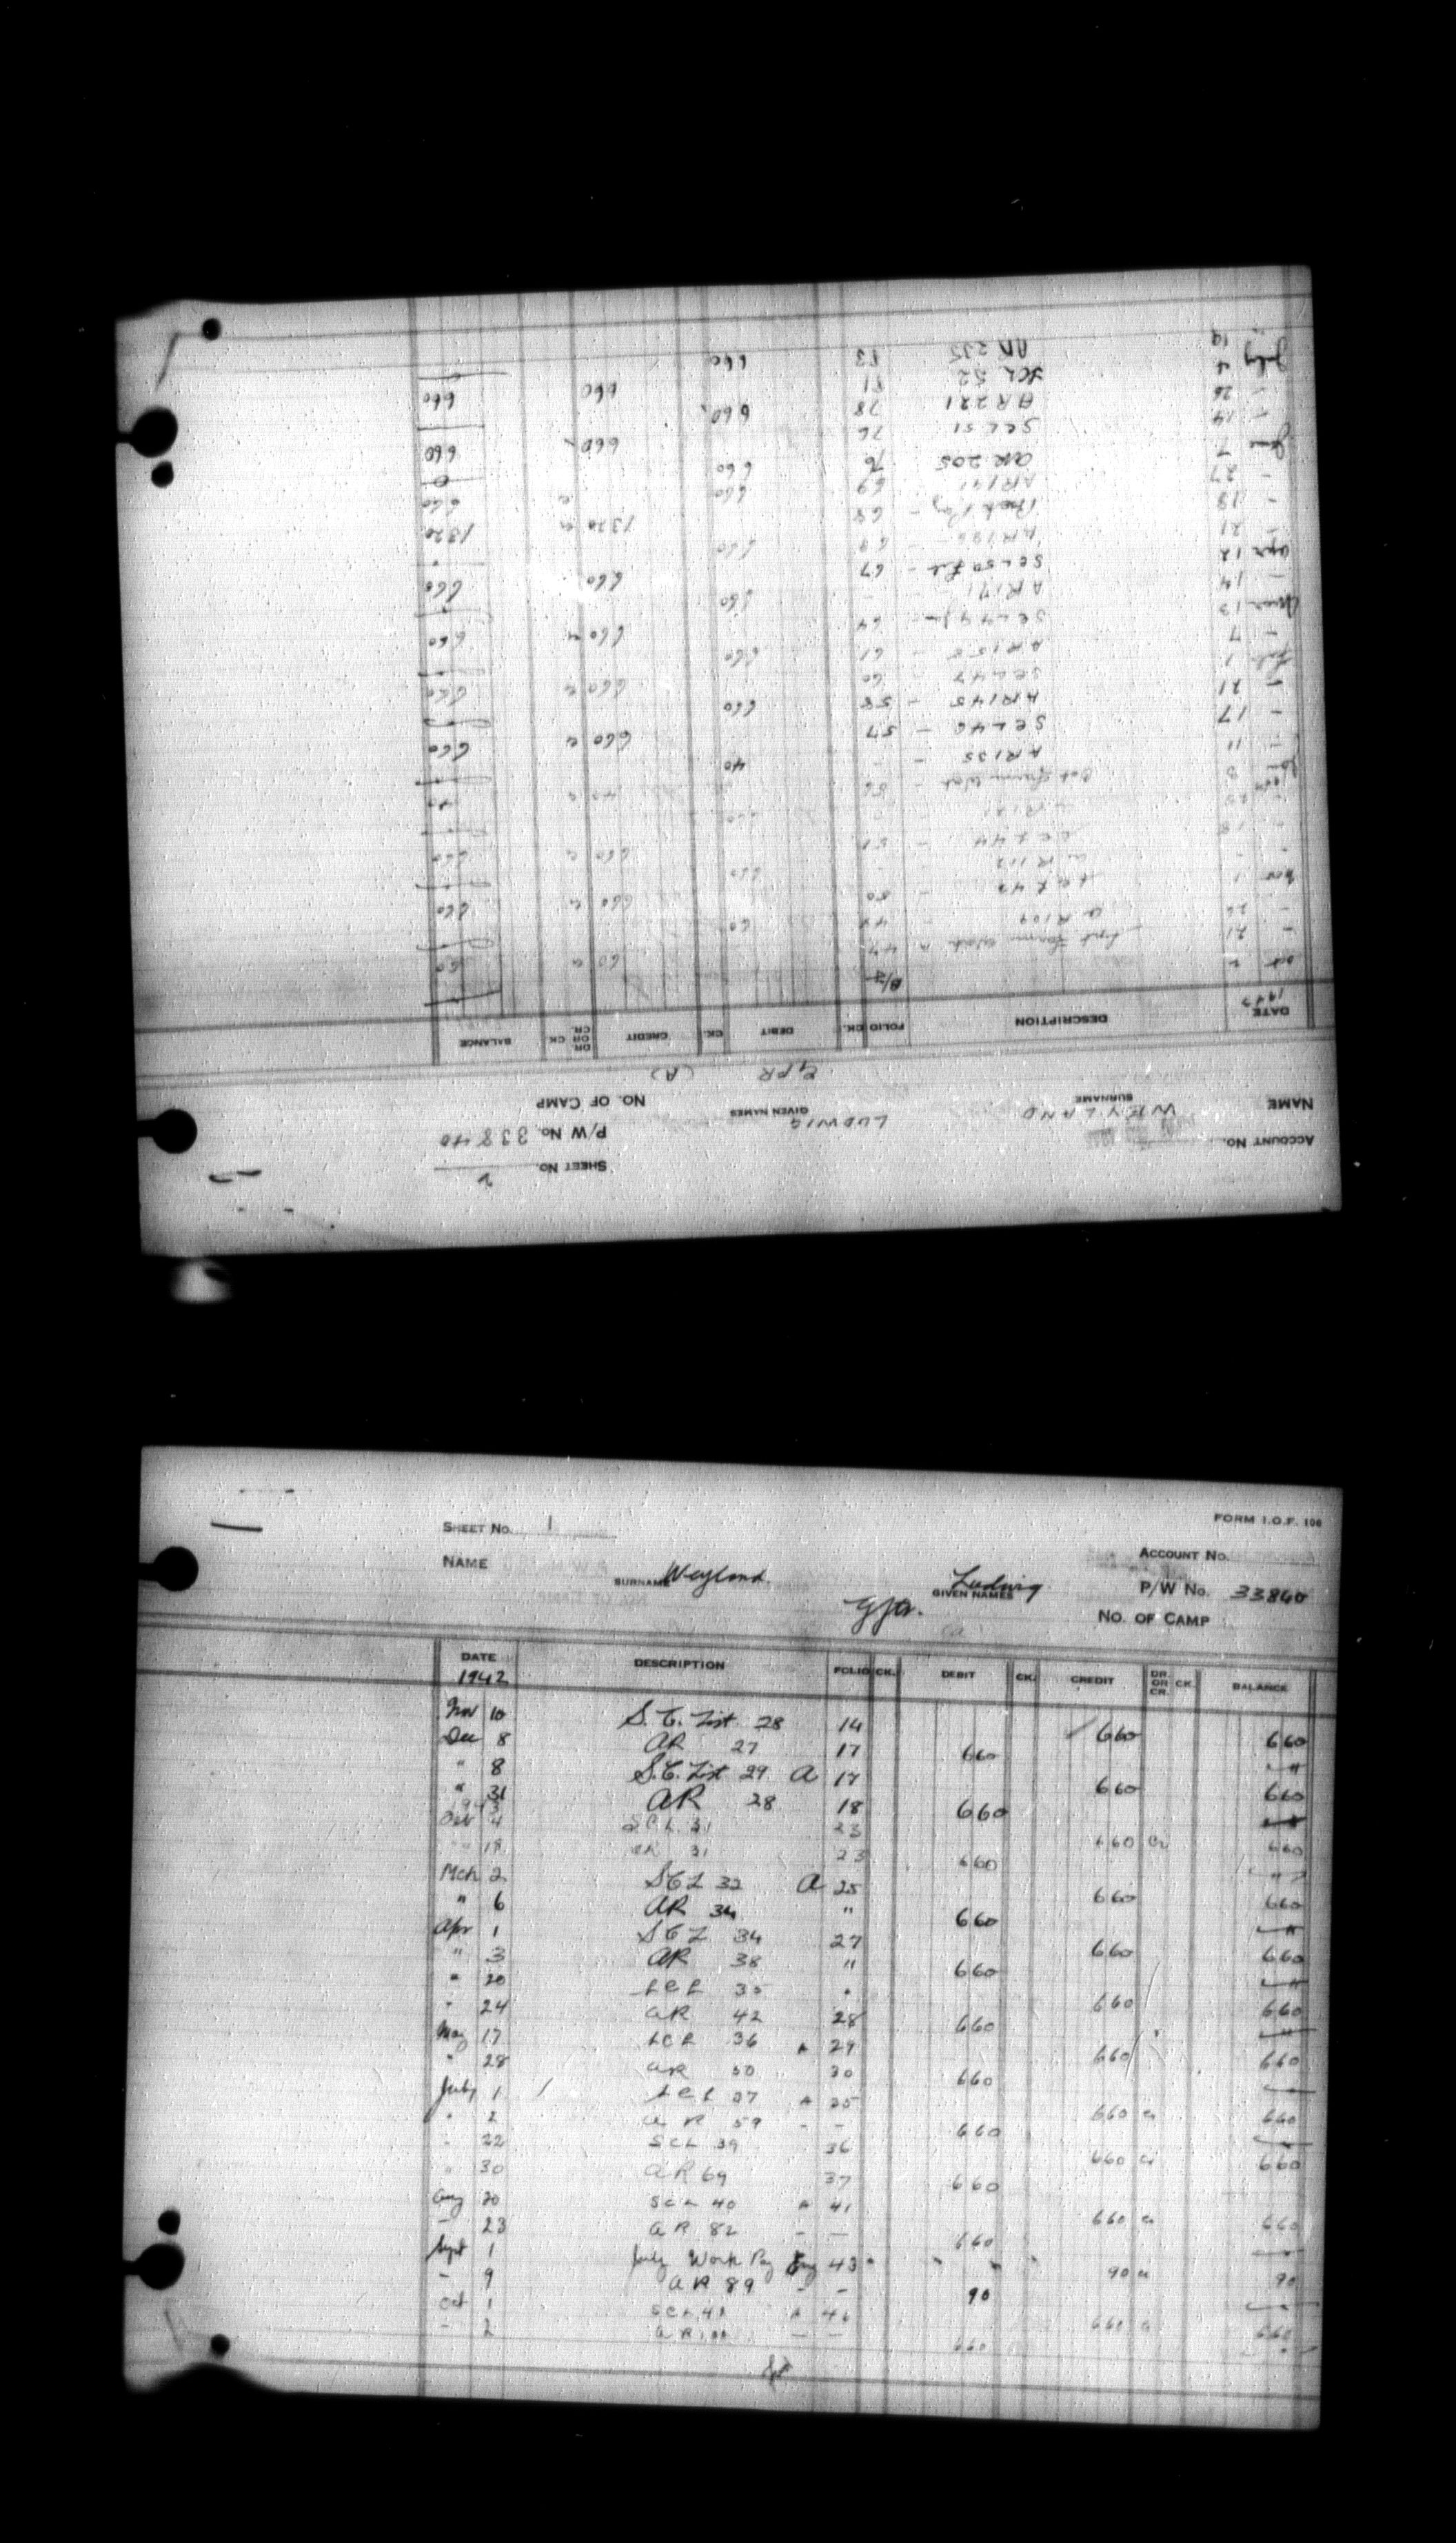 SHEET NO. 2
ACCOUNT NO. P/W No. 33840
NAME WEYLAND LUDWIG NO. OF CAMP
SURNAME GIVEN NAMES
GFR (A)
DATE DESCRIPTION FOLIO CK. DEBIT CK. CREDIT DR. OR CR. CK BALANCE
1943
B/F
Oct 2 Sept Farm Work A 47 60 Cr 60
- 21 AR 109 - 49 60
- 26 SCL 43 - 50 660 Cr 660
Nov 1 AR 112 - - 660
- - SCL 44 - 51 660 Cr 660
- 18 AR 121 - - 660
- 25 Oct Farm Work - 56 40 Cr 40
8 AR 135 - - 40
- 11 SCL 46 - 57 660 Cr 660
- 17 AR 145 - 58 660
- 21 SCL 47 - 60 660 Cr 660
Feb 1 AR 158 - 61 660
- 7 SCL 49 64 660 Cr 660
13 AR 171 - - 660
- 14 SCL 50 Feb - 67 660 660
Apr 12 AR 186 - 69 660
- 21 Back Pay - 68 1320 Cr 1320
- 19 AR 191 69 660 660
- 27 AR 205 76 660 0
June 7 SCL 51 76 660 660
- 14 AR 221 78 660
- 26 SCL 52 81 660 660
4 AR 235 83 660
July 19
FORM I.O.F. 106
SHEET NO. 1 ACCOUNT NO.
NAME Weyland Ludwig P/W No. 33840
SURNAME GIVEN NAMES
NO. OF CAMP
DATE DESCRIPTION FOLIO CK. DEBIT CK. CREDIT DR. OR CR. CK. BALANCE
1942
Nov 10 S.C. List 28 14 660 660
Dec 8 AR 27 17 660 "
" 8 S.C. List 29 A 17 660 660
" 31 AR 28 18 660 "
1943
4 SCL 31 23 660 Cr 660
" 18 AR 31 23 660 "
Mch 2 SCL 32 A 25 660 660
" 6 AR 34 " 660 "
Apr 1 SCL 34 27 660 660
" 3 AR 38 " 660 "
" 20 SCL 35 " 660 660
" 24 AR 42 28 660 "
May 17 SCL 36 A 29 660 660
" 28 AR 50 30 660
July 1 SCL 37 A 35 660 Cr 660
" 2 AR 59 - - 660
" 22 SCL 39 36 660 Cr 660
" 30 AR 69 37 660
Aug 20 SCL 40 A 41 660 Cr 660
- 23 AR 82 - - 660
Sept 1 July Work Pay 43 90 Cr 90
- 9 AR 89 - - 90
Oct 1 SCL 41 A 46 660 Cr 660
- 2 AR - - 660